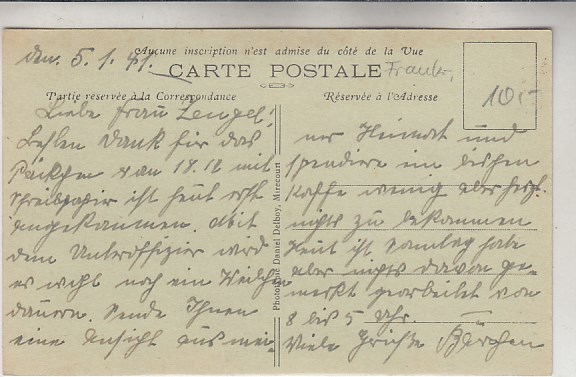 den. 5.1.41.
Aucune inscription n'est admise du côté de la Vue
CARTE POSTALE
Partie réservée à la Correspondance
Réservée à l'Adresse
10,-
Liebe Frau Zengel!
Besten Dank für das
Päckchen vom 18.12 mit
Schreibpapier ist heut erst
angekommen. Mit
dem Unteroffizier wird
es wohl noch ein Weilchen
dauern. Sende Ihnen
eine Ansicht aus mei-
ner Heimat und
spendiere ein bischen
Kaffe wenig aber herzl.
nichts zu bekommen
Heut ist Sonntag habe
aber nichts davon ge-
merkt gearbeitet von
8 bis 5 Uhr.
Viele Grüße
Phototypie Daniel Delboy, Mirecourt